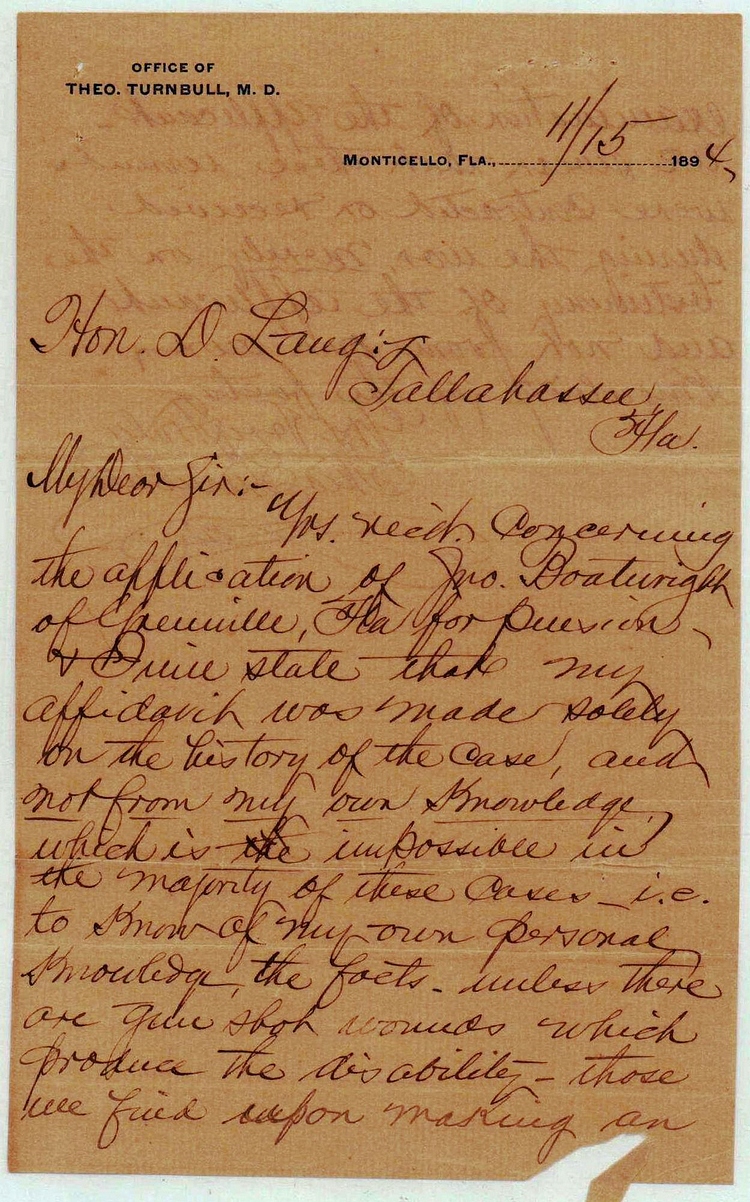 OFFICE OF
THEO. TURNBULL, M. D.
MONTICELLO, FLA., 11/15 1894,
Hon. D. Lang:-
Tallahassee,
Fla.
My Dear Sir:-
Yrs. rec'd. concerning
the application of Jno. Boatwright
of Greenville, Fla for pension
& I will state that my
affidavit was made solely
on the history of the case, and
not from my own knowledge,
which is the impossible in
the majority of these cases - i.e.
to know of my own personal
knowledge, the facts - unless there
are gun shot wounds which
produce the disability - those
we find upon making an